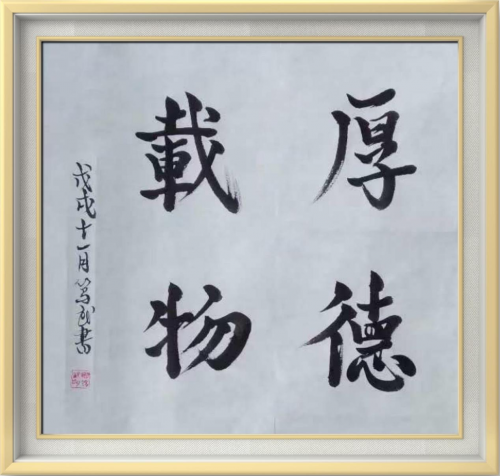 厚德
載物
戊戌十一月笃武書